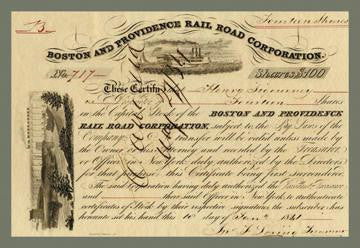 Fourteen Shares
B.
BOSTON AND PROVIDENCE RAIL ROAD CORPORATION.
No. 717 Shares $100
These Certify that Henry
Fourteen Shares
in the Capital Stock of the BOSTON AND PROVIDENCE
RAIL ROAD CORPORATION, subject to the By Laws of the
Company. No transfer will be valid unless made by
the Owner or his Attorney and recorded by the Treasurer
or Officer in New York duly authorized by the Directors
for that purpose, this Certificate being first surrendered.
The said Corporation having duly authorized the
and the subscriber their said Officer in New York, to authenticate
certificates of Stock by their respective signatures, the subscriber has
hereunto set his hand this 10 day of Jany 1841
Treasurer